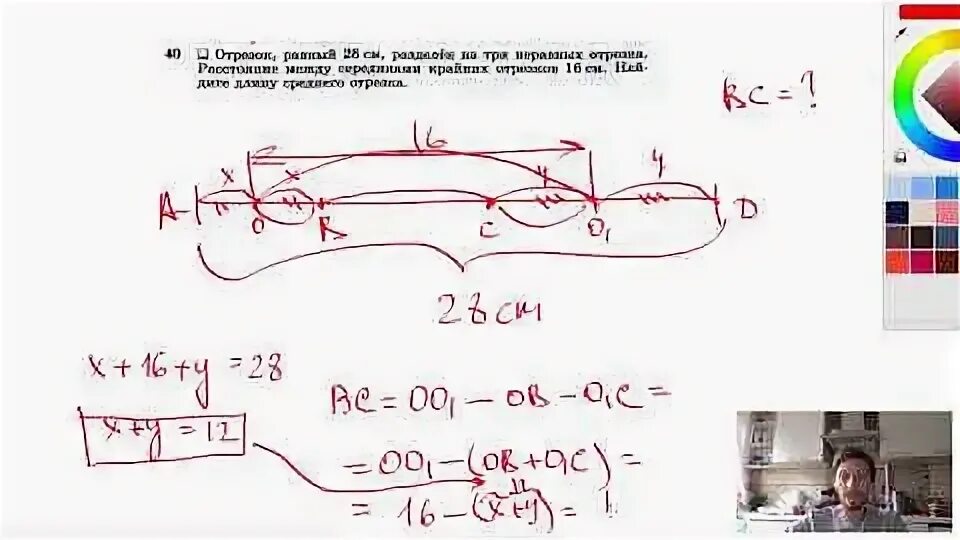 40 Отрезок, равный 28 см, разделён на три неравных отрезка.
Расстояние между серединами крайних отрезков 16 см. Най-
дите длину среднего отрезка.
BC = ?
16
x x y y
A O B C O₁ D
28 см
x + 16 + y = 28
x + y = 12
BC = OO₁ - OB - O₁C =
= OO₁ - (OB + O₁C) =
= 16 - (x + y) =